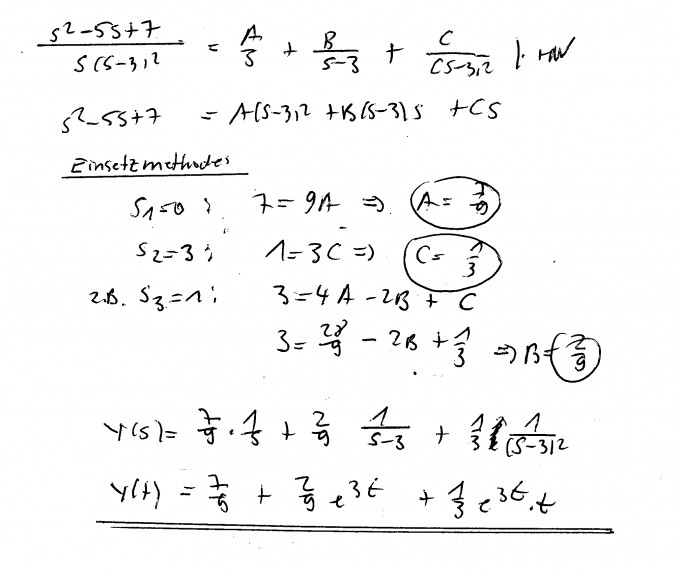 (s²-5s+7)/(s(s-3)²) = A/s + B/(s-3) + C/(s-3)² |·HN
s²-5s+7 = A(s-3)² + B(s-3)s + Cs
Einsetzmethode:
s₁=0: 7=9A ⇒ A=7/9
s₂=3: 1=3C ⇒ C=1/3
z.B. s₃=1: 3=4A-2B+C
3=28/9-2B+1/3 ⇒ B=2/9
Y(s)=7/9·1/s + 2/9 1/(s-3) + 1/3 1/(s-3)²
y(t)=7/9 + 2/9 e^3t + 1/3 e^3t·t